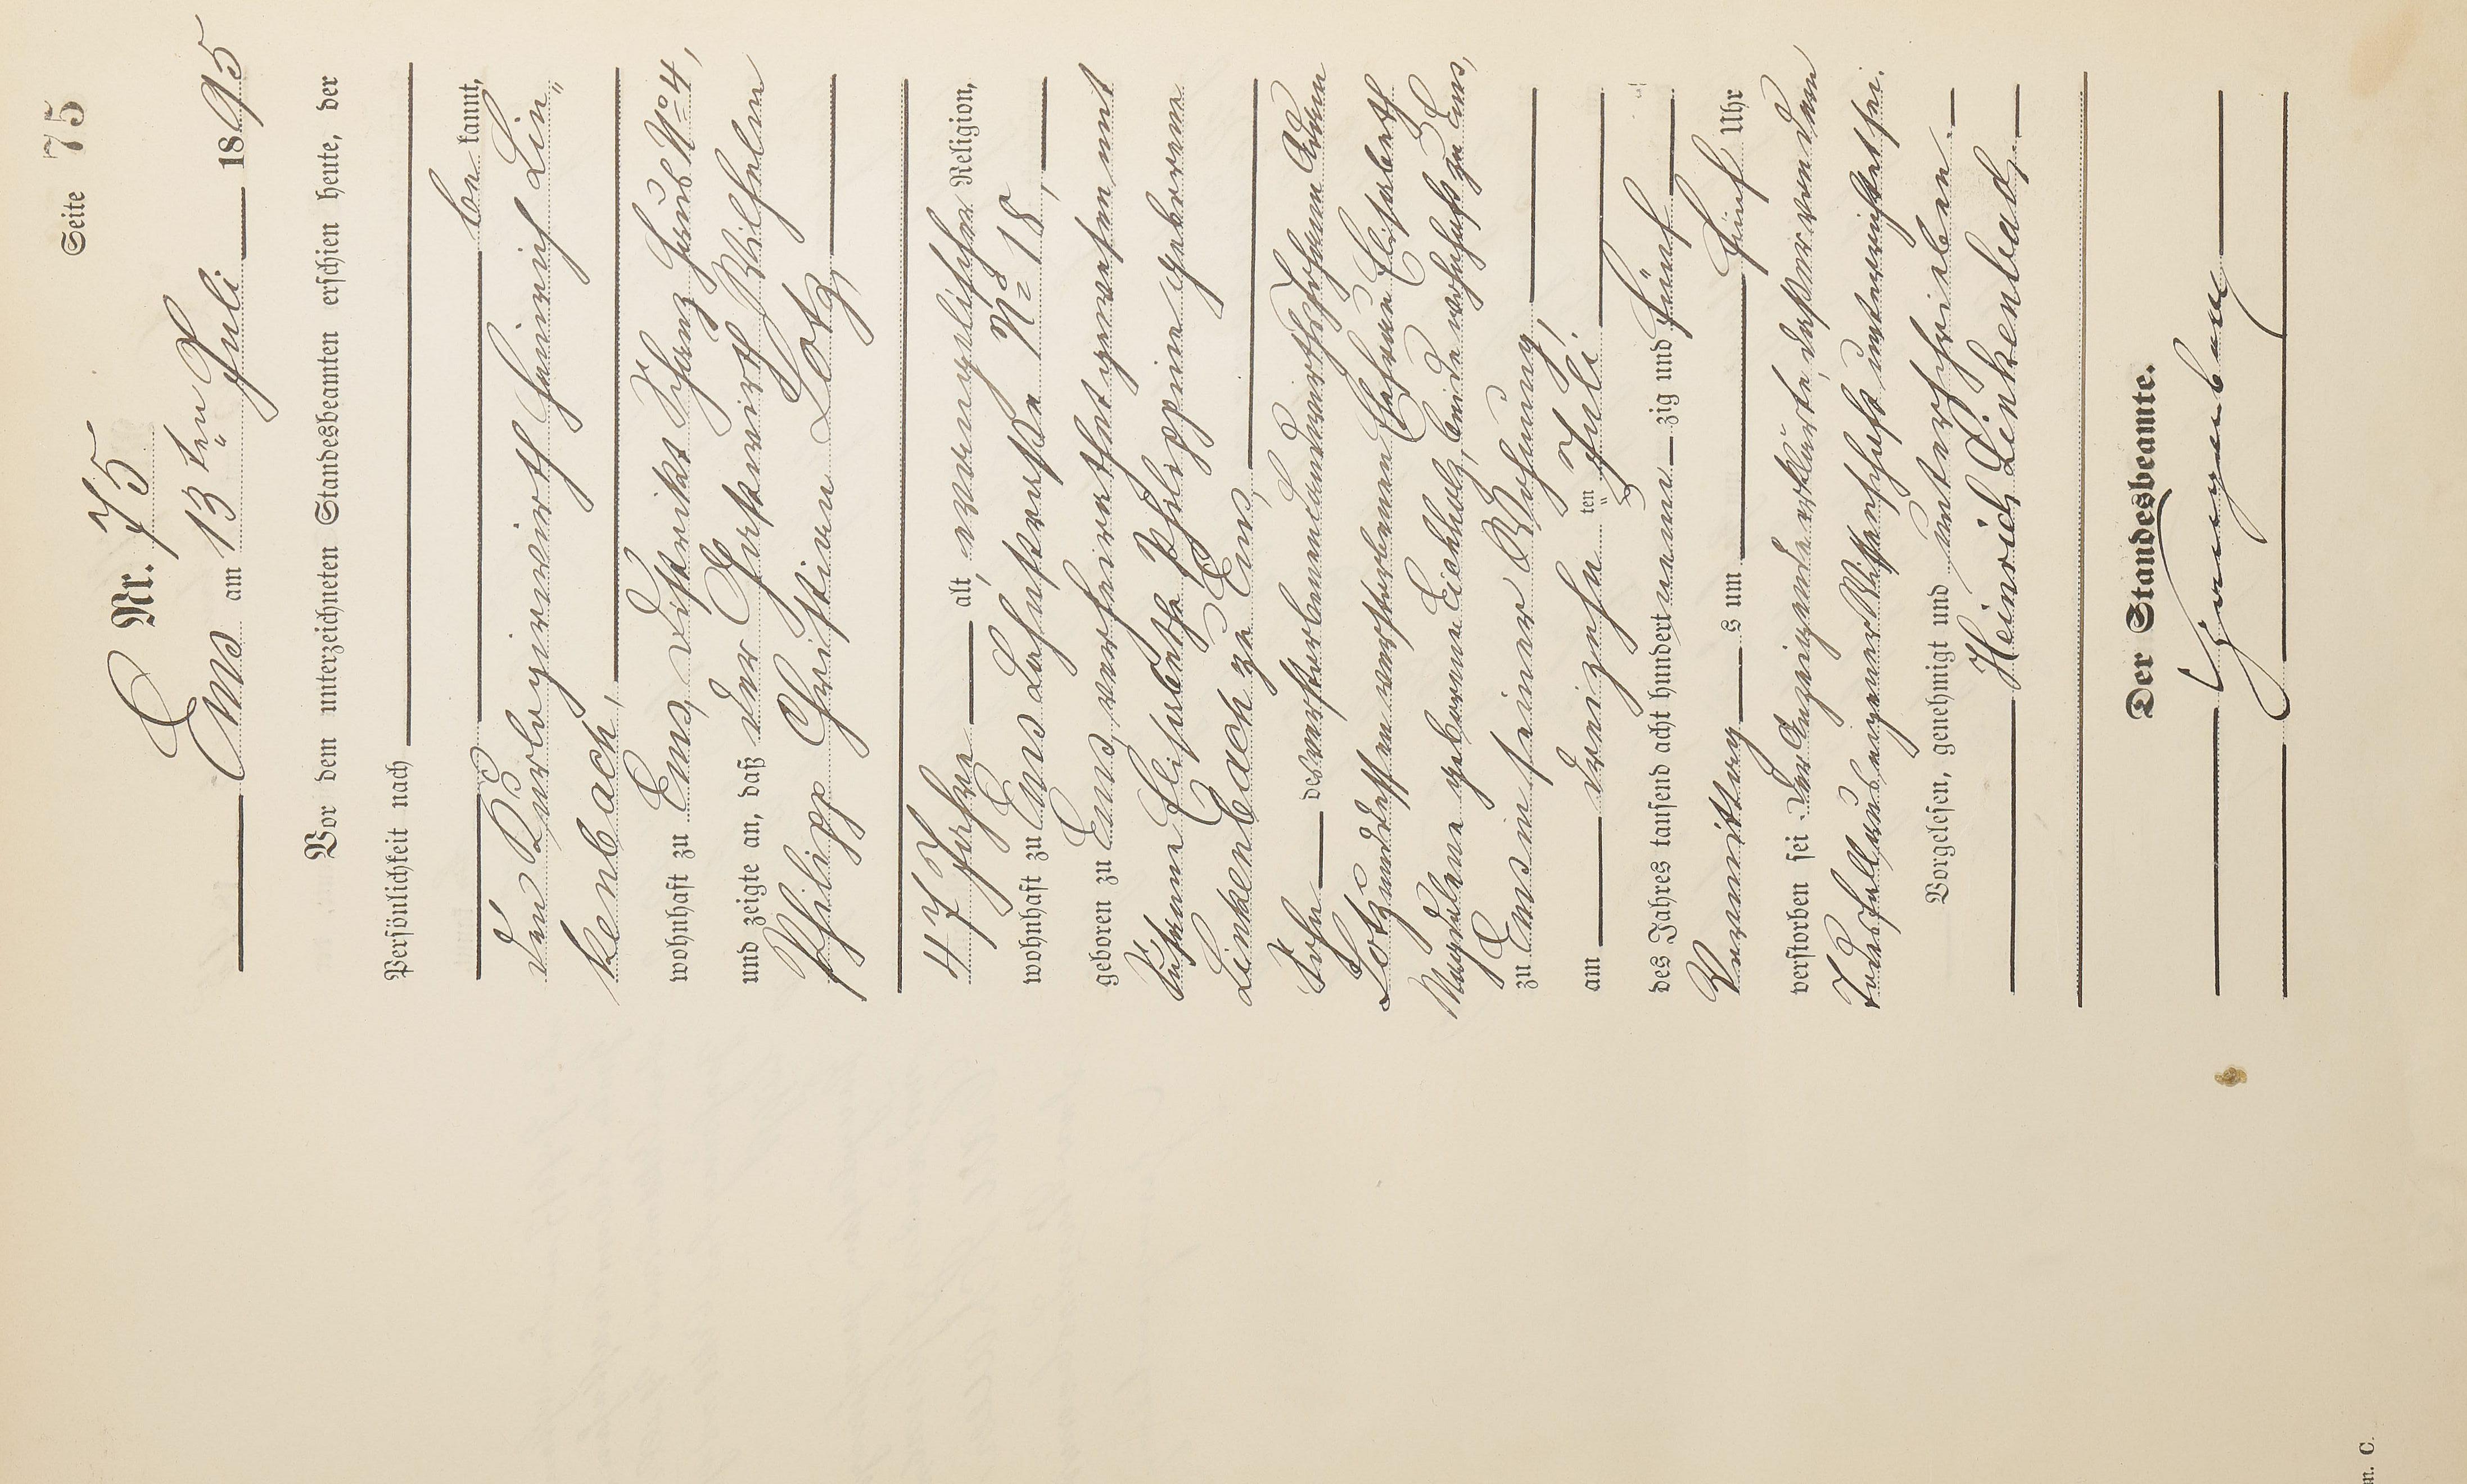 Seite 75
Nr. 75
Ems am 13ten Juli 1895
Vor dem unterzeichneten Standesbeamten erschien heute, der
Persönlichkeit nach
bekannt,
der Badewirth Heinrich Lin"
kenbach,
wohnhaft zu Ems, Distrikt Schanz Haus No 4,
und zeigte an, daß der Gastwirth Wilhelm
Philipp Christian Lotz,
47 Jahre alt, evangelischer Religion,
wohnhaft zu Ems Lahnstraße No 18,
geboren zu Ems, verheirathet gewesen mit
Elisabetha Philippine geborene
Linkenbach zu Ems,
Sohn des verstorbenen Johann Adam
Lotz und dessen verstorbenen Ehefrau Elisabeth
Magdalena geborene Eichholz, beide wohnhaft zu Ems,
zu Ems in seiner Wohnung,
am dreizehnten Juli
des Jahres tausend acht hundert neunzig und fünf
Vormittags um fünf Uhr
verstorben sei. Der Anzeigende erklärte, daß er von dem
Todesfall aus eigener Wissenschaft unterrichtet sei.
Vorgelesen, genehmigt und unterschrieben.
Heinrich Linkenbach,
Der Standesbeamte.
m. C.